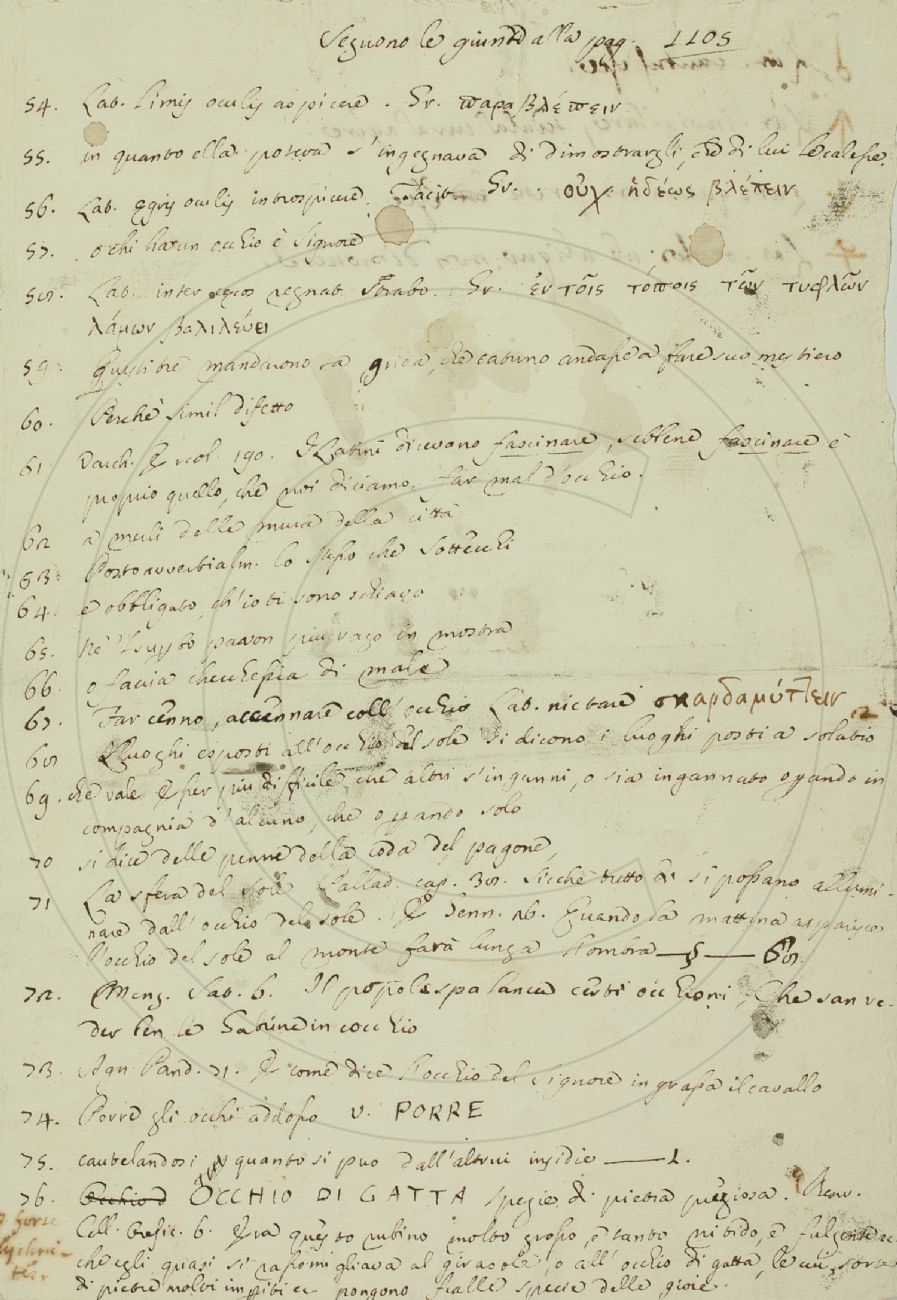 Seguono le giunte alla pag. 1105
54. Lat. limis oculis aspicere. Gr. παραβλέπειν
55. in quanto ella poteva s'ingegnava di dimostrargli, che di lui le calesse.
56. Lat. aegris oculis introspicere. Tacit. Gr. οὐχ ἡδέως βλέπειν
57. o chi ha un occhio è signore
58. Lat. inter caecos regnat strabo. Gr. ἐν τοῖς τόποις τῶν τυφλῶν
λάμων βασιλεύει
59. Questi tre mandarono la grida, che catuno andasse a fare suo mestiero
60. Perchè simil difetto
61. Varch. Ercol. 190. I Latini dicevano fascinare, sebbene fascinare è
propio quello, che noi diciamo. far mal d'occhio.
62 a merli delle mura della città
63. Posto avverbialm. lo stesso che Sottecchi
64. e obbligato, ch'io ti sono schiavo
65. Nè 'l pavon più vago in mostra
66. o faccia checchessia di male
67. Far cenno, accennare coll'occhio Lat. nictare σκαρδαμύττειν
68 Luoghi esposti all'occhio del sole si dicono i luoghi posti a solatio
69. che vale, E per più difficile, che altri s'inganni, o sia ingannato oprando in
compagnia d'alcuno, che oprando solo
70 si dice delle penne della coda del pagone,
71 La spera del sole Pallad. cap. 38. Sicchè tutto dì si possano allumi-
nare dall'occhio del sole. E Genn. 16. Quando la mattina apparisce
l'occhio del sole al monte farà lunga l'ombra — § — 68.
72. Menz. Sat. 6. Il popol spalanca certi occhioni, Che san ve-
der ben le Gabrine in cocchio
73. Agn. Pand. 71. E come dice l'occhio del signore ingrassa il cavallo
74. Porre gli occhi addosso v. PORRE
75. cautelandosi, quanto si può dall'altrui insidie — L.
76. OCCHIO DI GATTA Spezie di pietra preziosa. Benv.
Cell. Orefic. 6. Era questo rubino molto grosso, e tanto nitido, e fulgente ec.
che egli quasi si rassomigliava al girasole, o all'occhio di gatta, le cui sorte
di pietre molti imperiti ec. pongono fralle specie delle gioie.